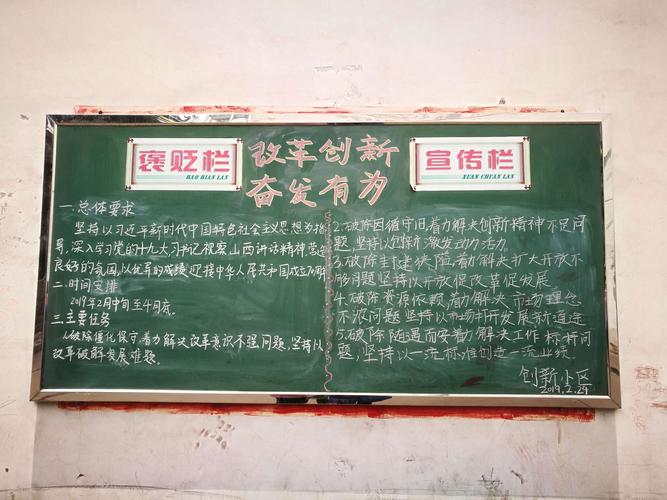 褒贬栏
BAO BIAN LAN
改革创新
奋发有为
宣传栏
XUAN CHUAN LAN
一.总体要求
坚持以习近平新时代中国特色社会主义思想为指
导,深入学习党的十九大,习书记视察山西讲话精神,营造
良好的氛围,以优异的成绩迎接中华人民共和国成立70周年
二.时间安排
2019年2月中旬至4月底.
三.主要任务
1.破除僵化保守,着力解决改革意识不强问题,坚持以
改革破解发展难题.
2.破除因循守旧,着力解决创新精神不足问
题,坚持以创新激发动力活力.
3.破除封建狭隘,着力解决扩大开放不
够问题坚持以开放促改革促发展
4.破除资源依赖,着力解决市场理念
不浓问题坚持以市场打开发展新通途
5.破除随遇而安着力解决工作标杆问
题,坚持以一流标准创造一流业绩.
创新小区
2019.2.29